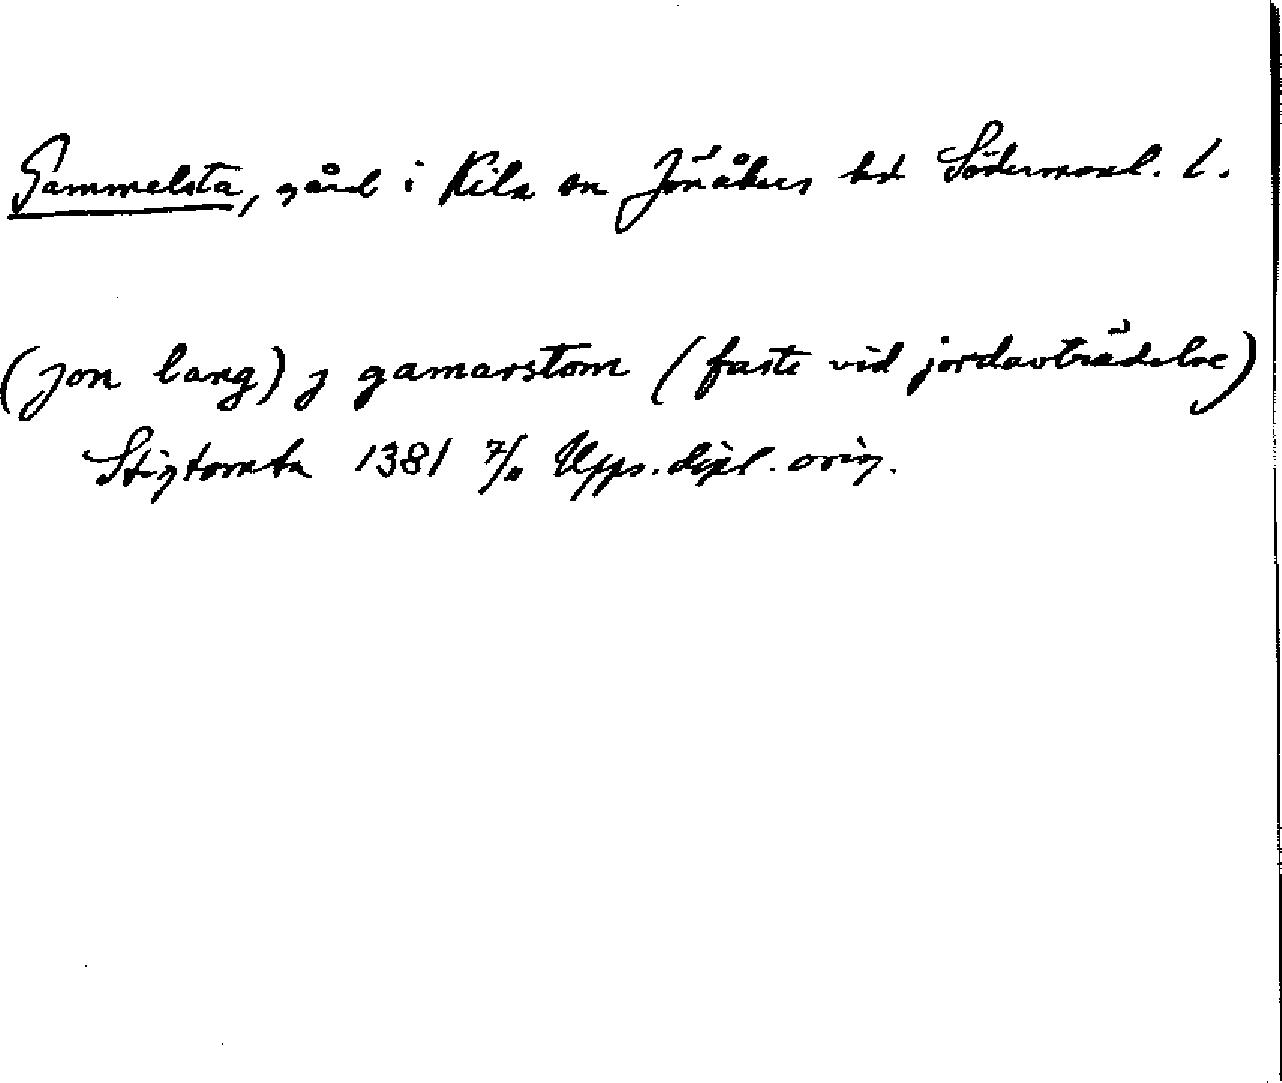 Gammelsta, gård i Kila sn Jönåkers hd Södermanl. l.
(jon lang) j gamarstom (faste vid jordavträdelse)
Stigtomta 1381 7/11 Upps. dipl. orig.